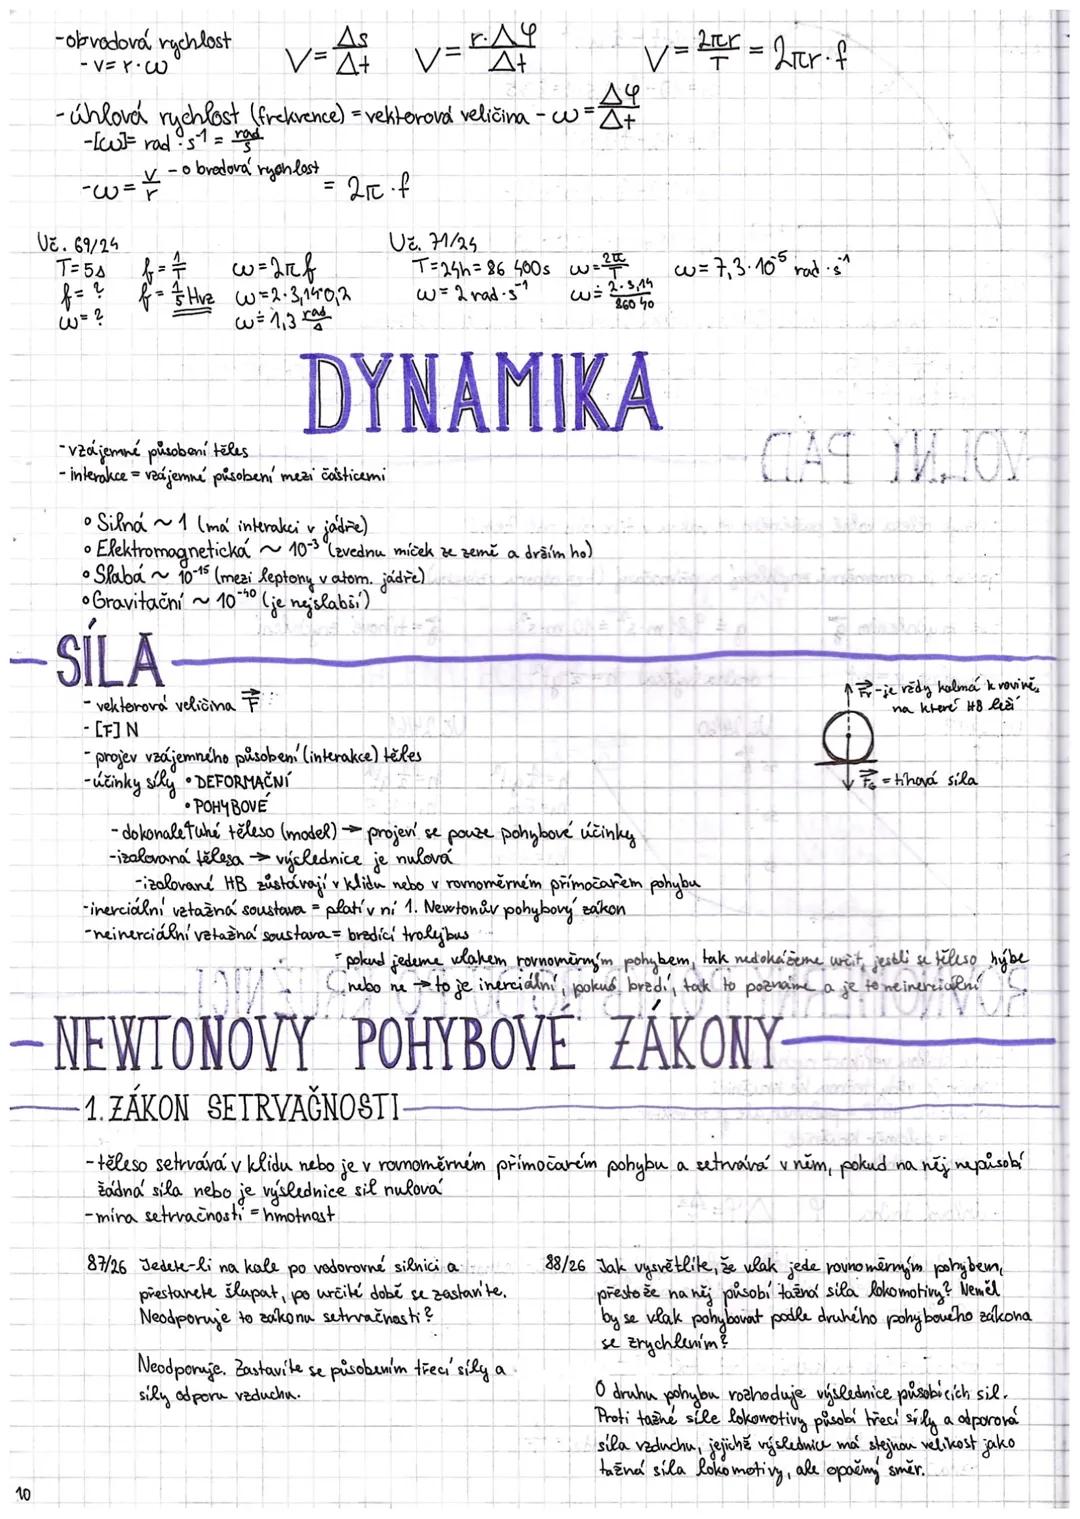 -obvodová rychlost
- v = r · ω
V = Δs/Δt   V = r·Δφ/Δt   V = 2πr/T = 2πr·f
-úhlová rychlost (frekvence) = vektorová veličina - ω = Δφ/Δt
-[ω]= rad · s⁻¹ = rad/s
-ω = v/r - obvodová rychlost = 2π · f
Uč. 69/24
T = 5s   f = 1/T   ω = 2πf
f = ?   f = 1/5 Hz   ω = 2·3,14·0,2
ω = ?   ω ≐ 1,3 rad/s
Uč. 71/24
T = 24h = 86 400s   ω = 2π/T   ω = 7,3·10⁻⁵ rad · s⁻¹
ω = 2 rad · s⁻¹   ω ≐ 2·3,14/860 40
DYNAMIKA
-vzájemné působení těles
- interakce = vzájemné působení mezi částicemi
° Silná ~ 1 (má interakci v jádře)
° Elektromagnetická ~ 10⁻³ (zvednu míček ze země a držím ho)
° Slabá ~ 10⁻¹⁵ (mezi leptony v atom. jádře)
° Gravitační ~ 10⁻⁴⁰ (je nejslabší)
SÍLA
- vektorová veličina F⃗
- [F] N
- projev vzájemného působení (interakce) těles
-účinky síly • DEFORMAČNÍ
• POHYBOVÉ
- dokonale tuhé těleso (model) → projeví se pouze pohybové účinky
-izolovaná tělesa → výslednice je nulová
-izolované HB zůstávají v klidu nebo v rovnoměrném přímočarém pohybu
-inerciální vztažná soustava = platí v ní 1. Newtonův pohybový zákon
-neinerciální vztažná soustava = brzdící trolejbus
- pokud jedeme vlakem rovnoměrným pohybem, tak nedokážeme určit, jestli se těleso hýbe
nebo ne → to je inerciální, pokud brzdí, tak to poznáme a je to neinerciální
Fr - je vždy kolmá k rovině,
na které HB leží
F_G = tíhová síla
NEWTONOVY POHYBOVÉ ZÁKONY
1. ZÁKON SETRVAČNOSTI
-těleso setrvává v klidu nebo je v rovnoměrném přímočarém pohybu a setrvává v něm, pokud na něj nepůsobí
žádná síla nebo je výslednice sil nulová
-míra setrvačnosti = hmotnost
87/26 Jedete-li na kole po vodorovné silnici a
přestanete šlapat, po určité době se zastavíte.
Neodporuje to zákonu setrvačnosti?
Neodporuje. Zastavíte se působením třecí síly a
síly odporu vzduchu.
88/26 Jak vysvětlíte, že vlak jede rovnoměrným pohybem,
přestože na něj působí tažná síla lokomotivy? Neměl
by se vlak pohybovat podle druhého pohybového zákona
se zrychlením?
O druhu pohybu rozhoduje výslednice působících sil.
Proti tažné síle lokomotivy působí třecí síly a odporová
síla vzduchu, jejichž výslednice má stejnou velikost jako
tažná síla lokomotivy, ale opačný směr.
10